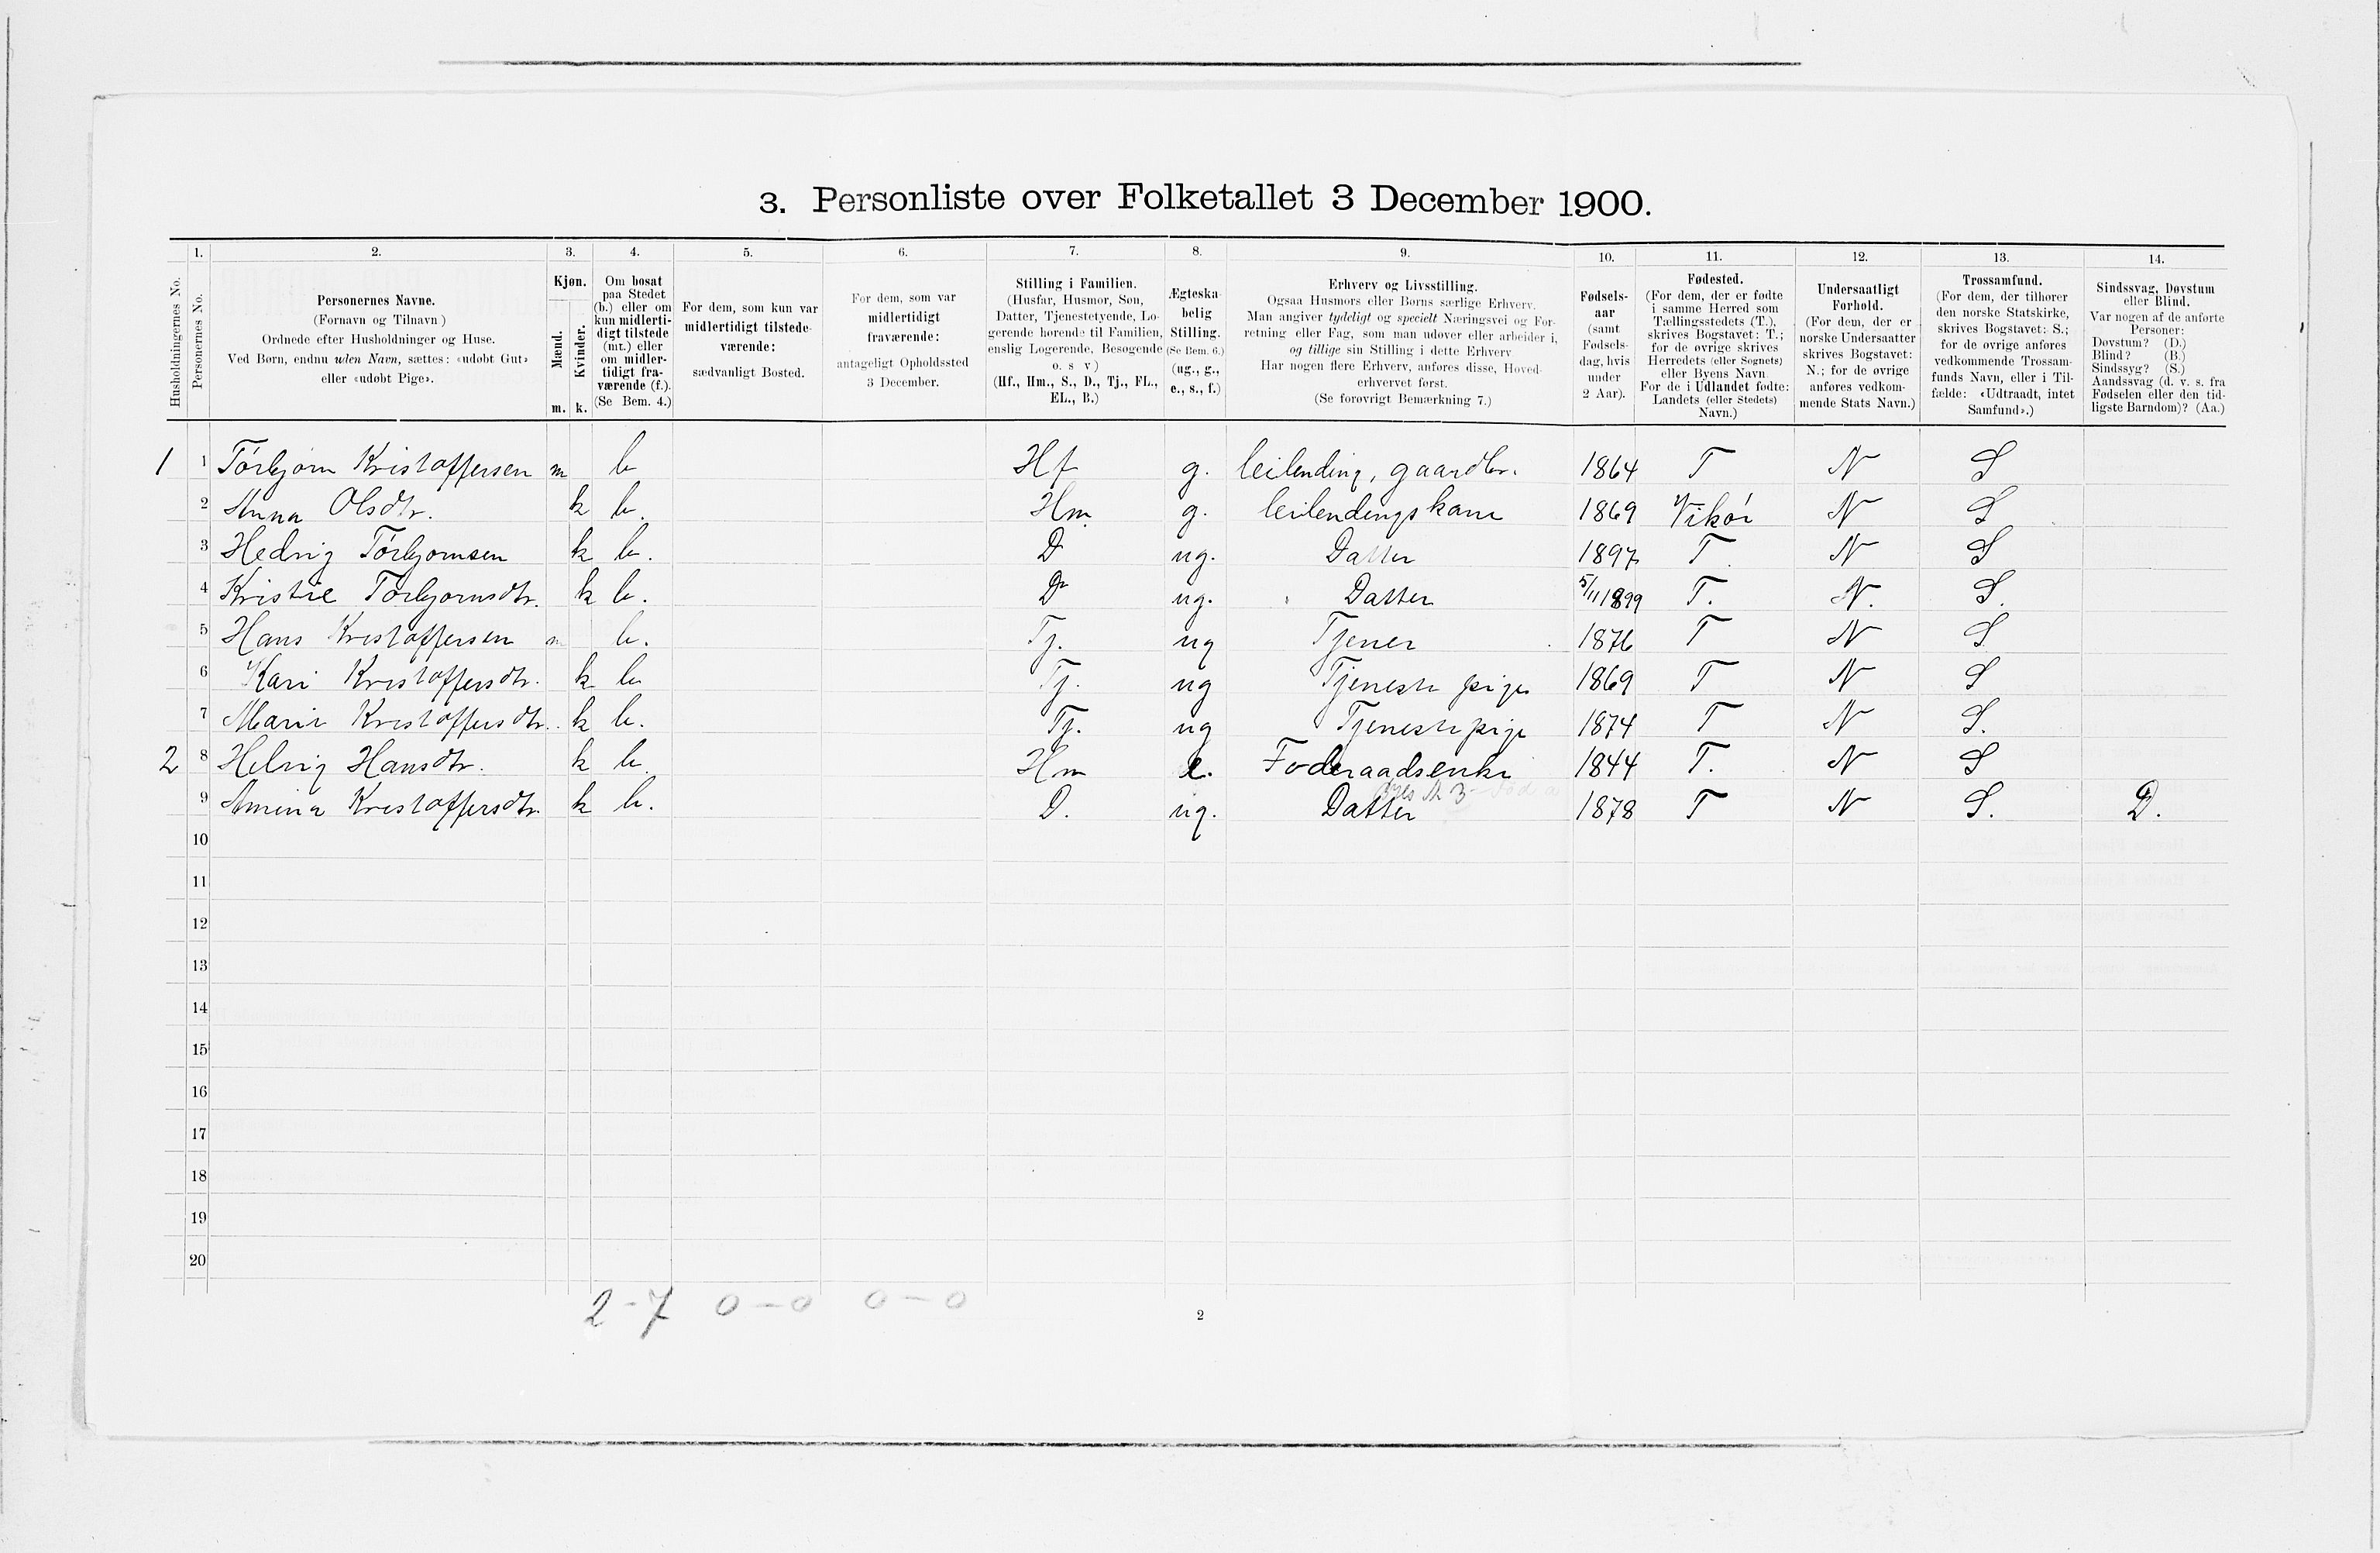 3. Personliste over Folketallet 3 December 1900.
1. 2. 3. 4. 5. 6. 7. 8. 9. 10. 11. 12. 13. 14.
Husholdningernes No.
Personernes No.
Personernes Navne.
(Fornavn og Tilnavn)
Ordnede efter Husholdninger og Huse.
Ved Børn, endnu uden Navn, sættes: «udøbt Gut»
eller «udøbt Pige».
Kjøn.
Mænd.
Kvinder.
m. k.
Om bosat
paa Stedet
(b.) eller om
kun midlerti-
digt tilstede
(mt.) eller
om midler-
tidigt fra-
værende (f.).
(Se Bem. 4.)
For dem, som kun var
midlertidigt tilstede-
værende:
sædvanligt Bosted.
For dem, som var
midlertidigt
fraværende:
antageligt Opholdssted
3 December.
Stilling i Familien.
(Husfar, Husmor, Søn,
Datter, Tjenestetyende, Lo-
gerende hørende til Familien,
enslig Logerende, Besøgende
o. s v)
(Hf., Hm., S., D., Tj., FL.,
EL., B.)
Ægteska-
belig
Stilling.
(Se Bem. 6.)
(ug., g.,
e., s., f.)
Erhverv og Livsstilling.
Ogsaa Husmors eller Børns særlige Erhverv.
Man angiver tydeligt og specielt Næringsvei og For-
retning eller Fag, som man udøver eller arbeider i,
og tillige sin Stilling i dette Erhverv
Har nogen flere Erhverv, anføres disse, Hoved-
erhvervet først.
(Se forøvrigt Bemærkning 7.)
Fødsels-
aar
(samt
Fødsels-
dag, hvis
under
2 Aar).
Fødested.
(For dem, der er fødte
i samme Herred som
Tællingsstedets (T.),
skrives Bogstavet: T.;
for de øvrige skrives
Herredets (eller Sognets)
eller Byens Navn.
For de i Udlandet fødte:
Landets (eller Stedets)
Navn.)
Undersaatligt
Forhold.
(For dem, der er
norske Undersaatter
skrives Bogstavet:
N.; for de øvrige
anføres vedkom-
mende Stats Navn.)
Trossamfund.
(For dem, der tilhører
den norske Statskirke,
skrives Bogstavet: S.;
for de øvrige anføres
vedkommende Trossam-
funds Navn, eller i Til-
fælde: «Udtraadt, intet
Samfund».)
Sindssvag, Døvstum
eller Blind.
Var nogen af de anførte
Personer:
Døvstum? (D.)
Blind? (B.)
Sindssyg? (S.)
Aandssvag (d. v. s. fra
Fødselen eller den tid-
ligste Barndom)? (Aa.)
1 1 Torbjørn Kristoffersen m b Hf g. leilending, gaardbr. 1864 T N S
2 Anna Olsdtr. k b. Hm g. leilendingskone 1869 Vikør N S
3 Hedvig Torbjornsen k b. D ug. Datter 1897 T N S
4 Kristie Torbjornsdtr. k b. D ug. Datter 5/11 1899 T. N. S.
5 Hans Kristoffersen m b. Tj. ug Tjener 1876 T N S
6 Kari Kristoffersdtr. k b Tj. ug Tjeneste pige 1869 T N S
7 Marie Kristoffersdtr. k b. Tj. ug Tjenestepige 1874 T N S.
2 8 Helvig Hansdtr. k b. Hm e. Foderaadsenke 1844 T. N S
9 Amina Kristoffersdtr. k b. D. ug. Datter 1878 T N S. D.
10
11
12
13
14
15
16
17
18
19
20
2-7 0-0 0-0
2